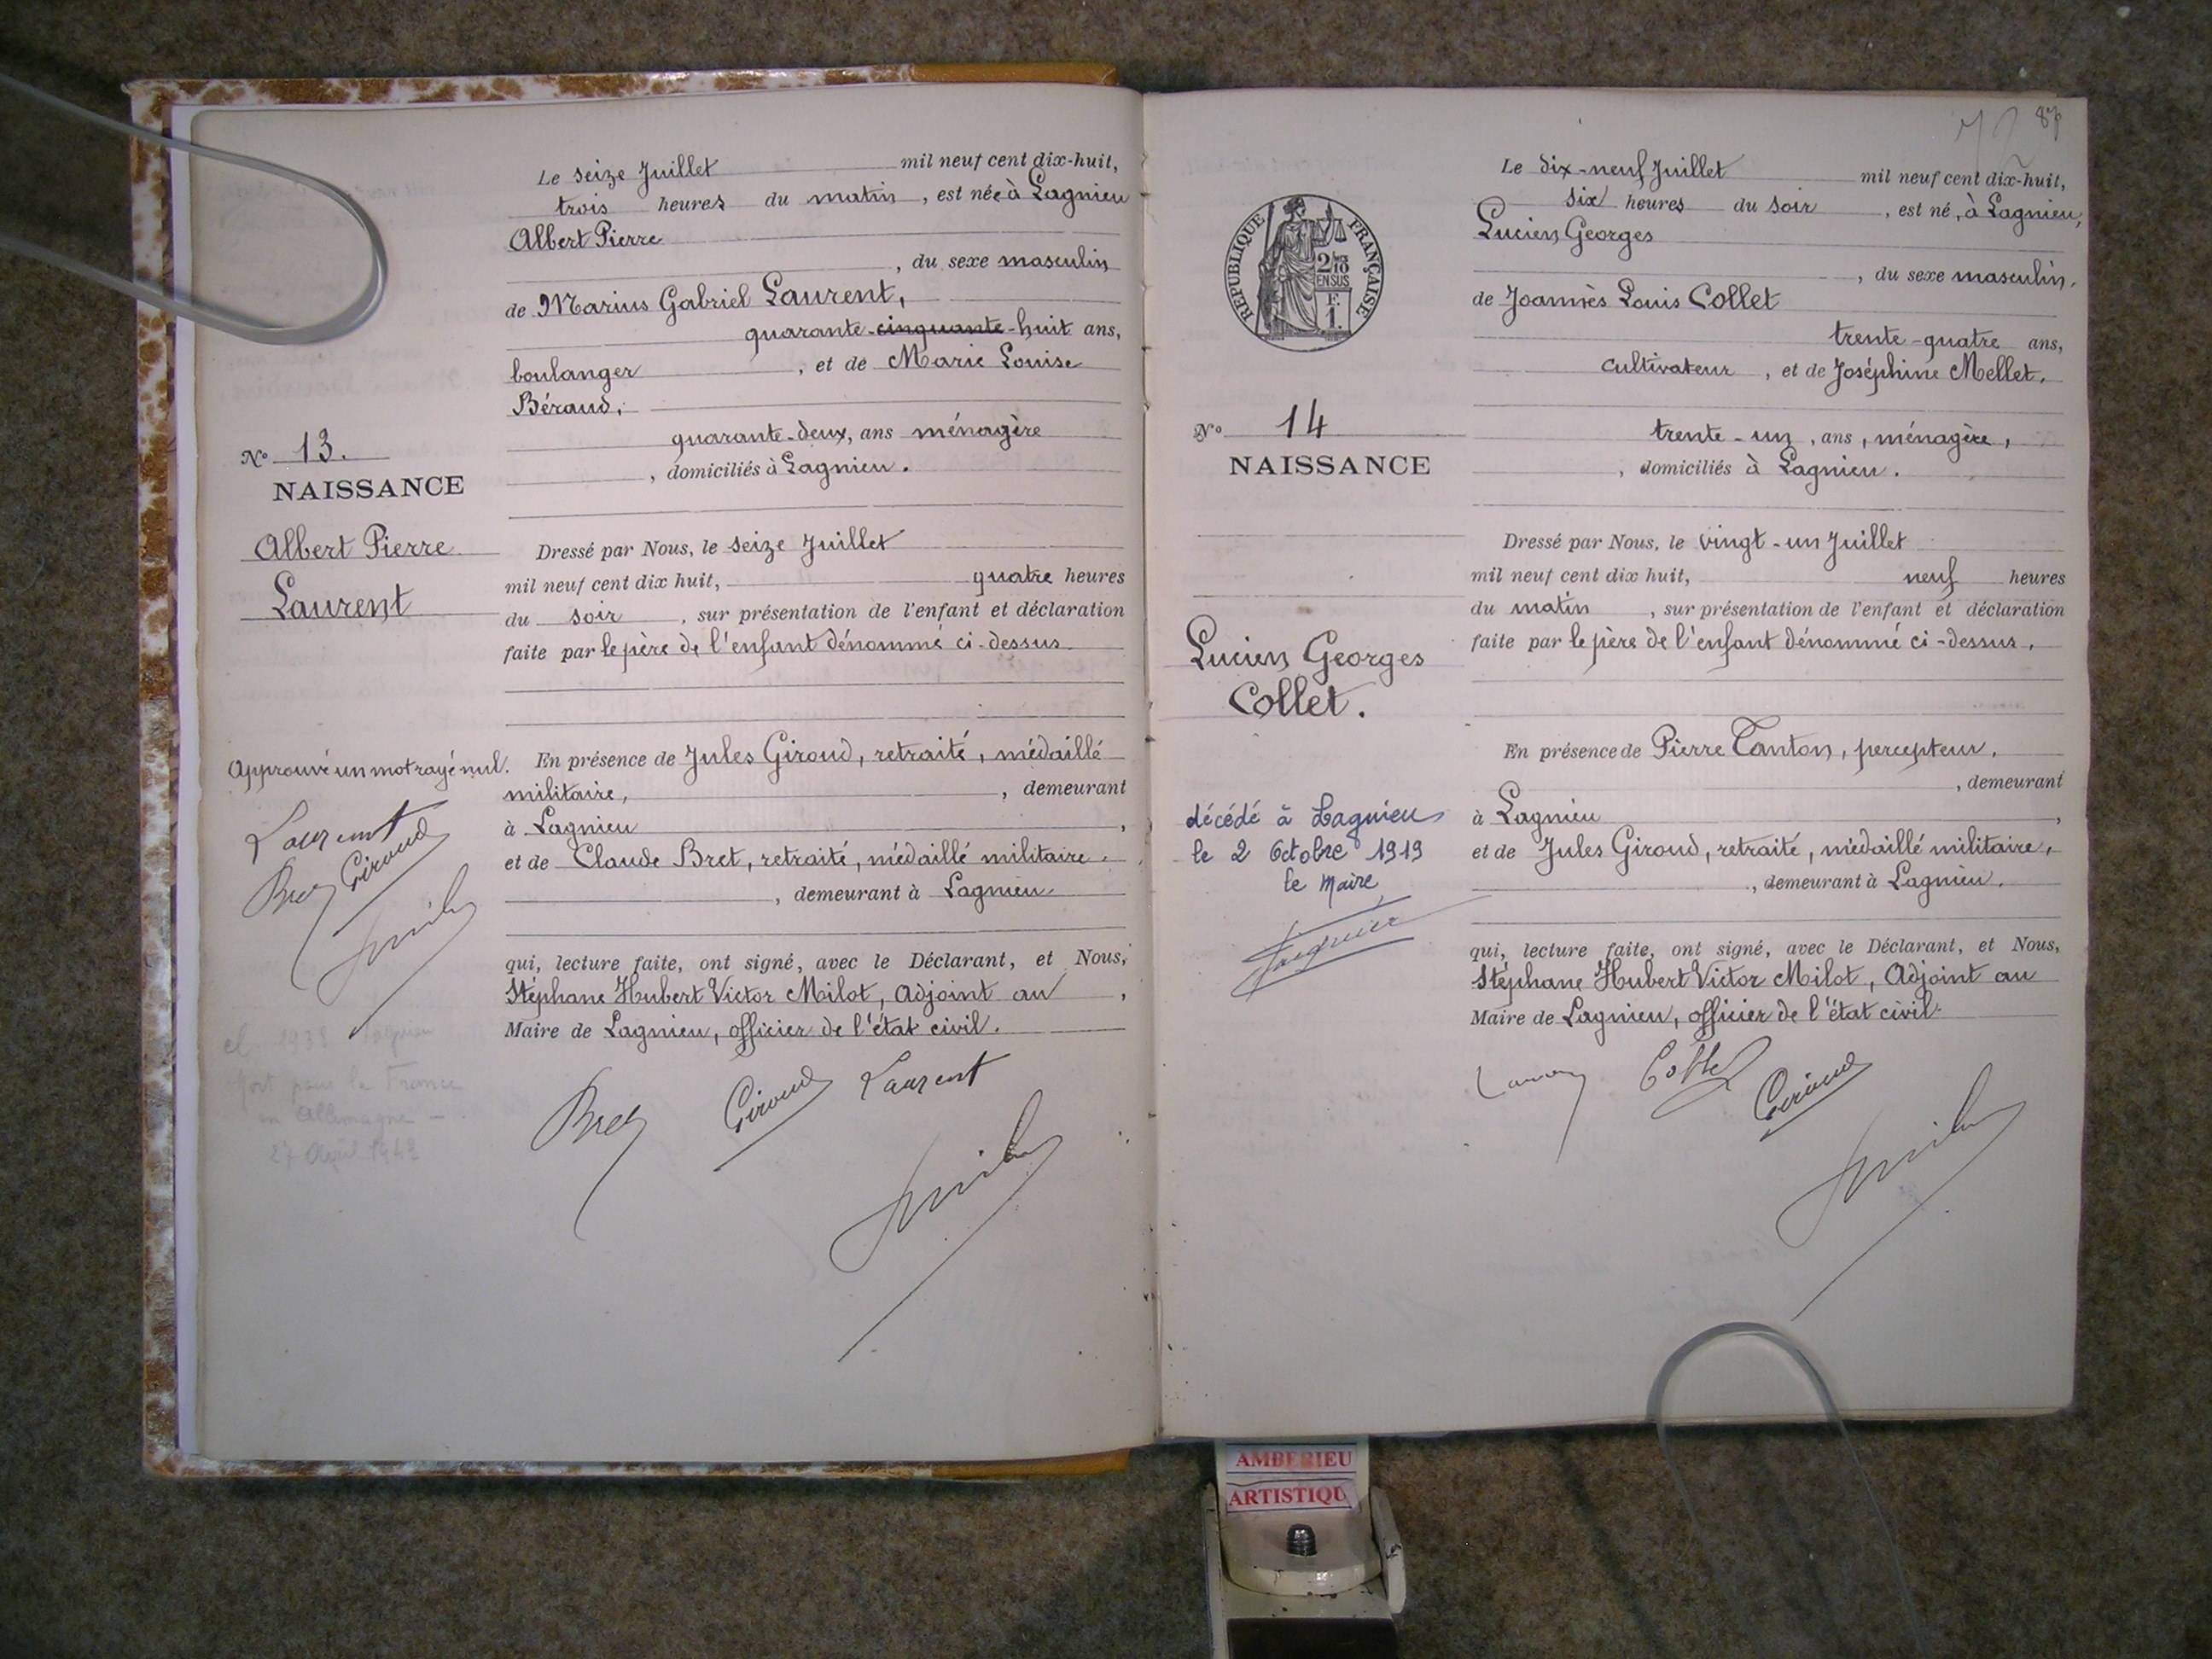 Le seize Juillet mil neuf cent dix-huit,
trois heures du matin, est née à Lagnieu
Albert Pierre
, du sexe masculin
de Marius Gabriel Laurent,
quarante-cinquante-huit ans,
boulanger, et de Marie Louise
Béraud,
quarante-deux, ans ménagère
, domiciliés à Lagnieu.
No 13.
NAISSANCE
Albert Pierre
Laurent
Dressé par Nous, le seize Juillet
mil neuf cent dix huit, quatre heures
du soir, sur présentation de l'enfant et déclaration
faite par le père de l'enfant dénommé ci-dessus
Approuvé un mot rayé nul.
Laurent
Bret Giroud
En présence de Jules Giroud, retraité, médaillé
militaire, , demeurant
à Lagnieu,
et de Claude Bret, retraité, médaillé militaire,
, demeurant à Lagnieu
qui, lecture faite, ont signé, avec le Déclarant, et Nous,
Stéphane Hubert Victor Milot, Adjoint au,
Maire de Lagnieu, officier de l'état civil.
1938
Mort pour la France
en Allemagne -
27 Avril
Bret Giroud Laurent
87
REPUBLIQUE FRANÇAISE
2/10
EN SUS
F.
1.
Le dix-neuf Juillet mil neuf cent dix-huit,
six heures du soir, est né, à Lagnieu,
Lucien Georges
, du sexe masculin,
de Joannès Louis Collet
trente-quatre ans,
cultivateur, et de Joséphine Mellet,
trente-un, ans, ménagère,
, domiciliés à Lagnieu.
No 14
NAISSANCE
Lucien Georges
Collet.
Dressé par Nous, le vingt-un Juillet
mil neuf cent dix huit, neuf heures
du matin, sur présentation de l'enfant et déclaration
faite par le père de l'enfant dénommé ci-dessus,
décédé à Lagnieu
le 2 Octobre 1919
le Maire
En présence de Pierre Tanton, percepteur,
, demeurant
à Lagnieu,
et de Jules Giroud, retraité, médaillé militaire,
, demeurant à Lagnieu.
qui, lecture faite, ont signé, avec le Déclarant, et Nous,
Stéphane Hubert Victor Milot, Adjoint au
Maire de Lagnieu, officier de l'état civil.
Collet Giroud
AMBERIEU
ARTISTIQU